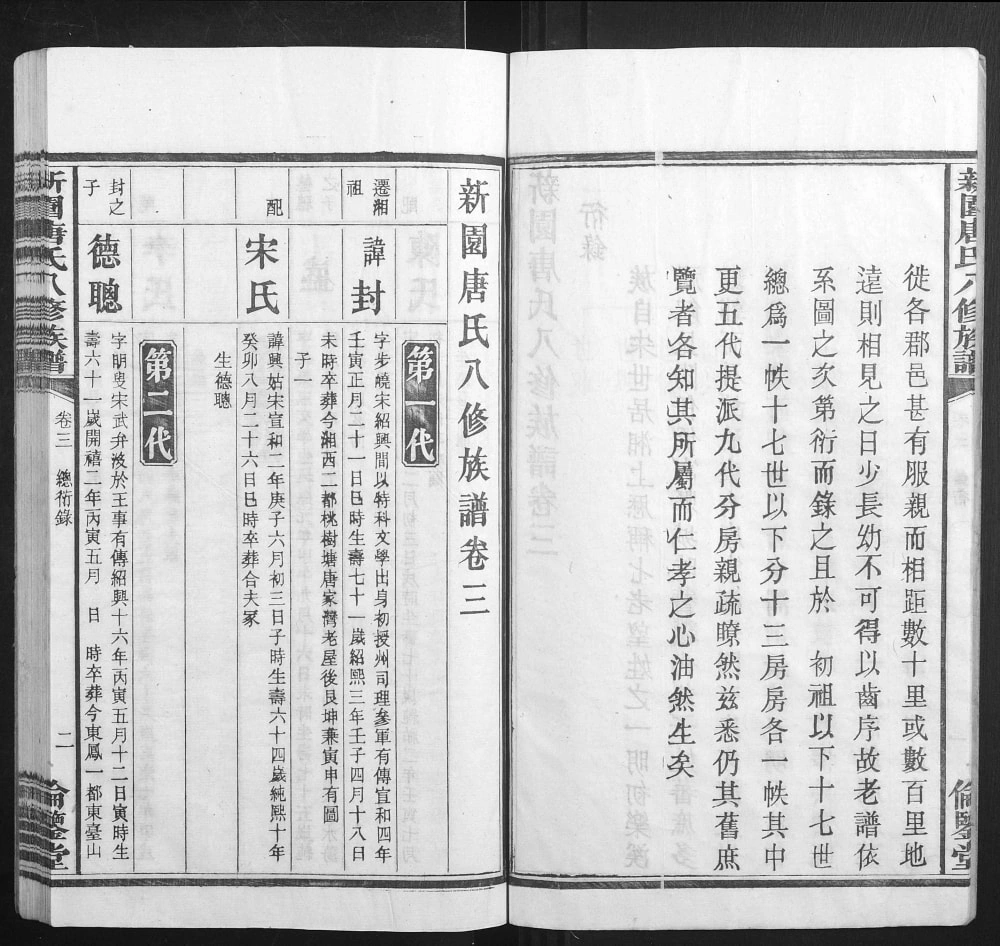 新園唐氏八修族譜
倫鑒堂
徙各郡邑甚有服親而相距數十里或數百里地
遠則相見之日少長幼不可得以齒序故老譜依
系圖之次第衍而錄之且於　初祖以下十七世
總為一帙十七世以下分十三房房各一帙其中
更五代提派九代分房親疏瞭然茲悉仍其舊庶
覽者各知其所屬而仁孝之心油然生矣
新園唐氏八修族譜卷三
第一代
遷湘祖
諱封
字步皢宋紹興間以特科文學出身初授州司理叅軍有傳宣和四年
壬寅正月二十一日巳時生壽七十一歲紹熙三年壬子四月十八日
未時卒葬今湘西二都桃樹塘唐家灣老屋後艮坤兼寅申有圖
子一
配
宋氏
諱興姑宋宣和二年庚子六月初三日子時生壽六十四歲純熙十年
癸卯八月二十六日巳時卒葬合夫冢
生德聰
第二代
封之子
德聰
字明叟宋武弁歿於王事有傳紹興十六年丙寅五月十二日寅時生
壽六十一歲開禧二年丙寅五月　日　時卒葬今東鳳一都東臺山
新園唐氏八修族譜
卷三　總衍錄
二
倫鑒堂